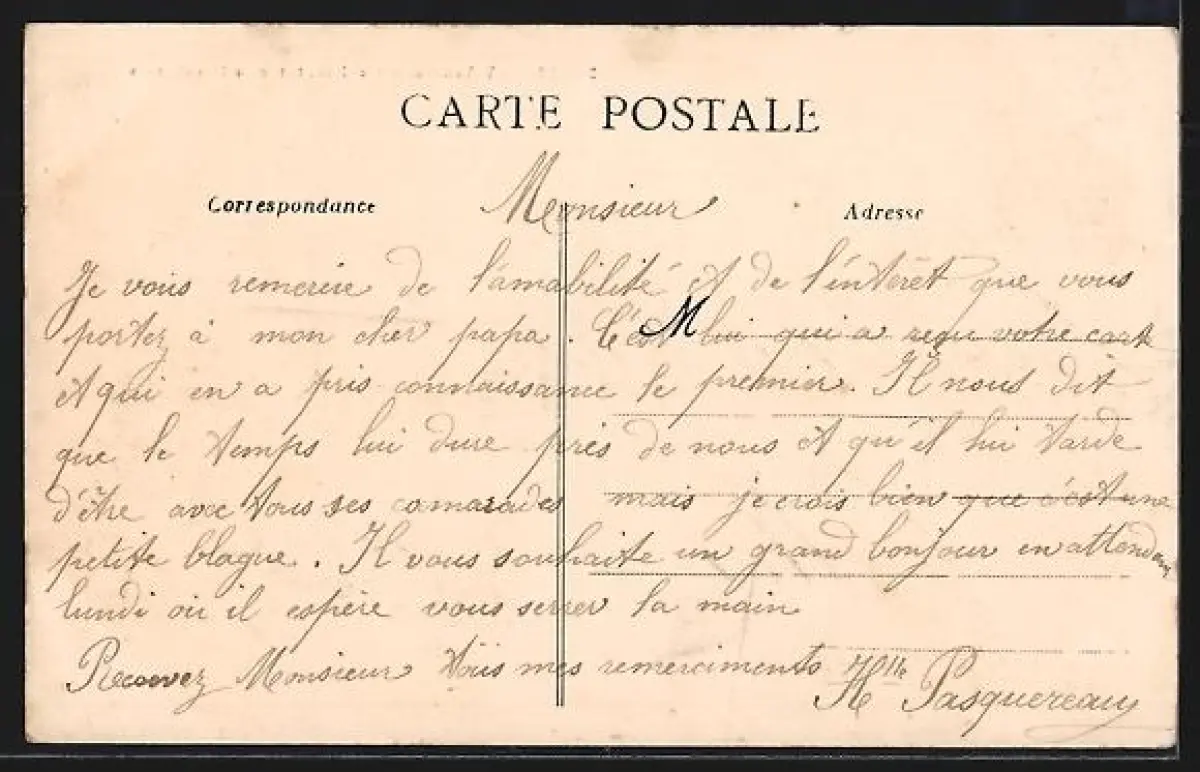 CARTE POSTALE
Correspondance
Adresse
Monsieur
Je vous remercie de l'amabilité et de l'intérêt que vous
portez à mon cher papa. C'est lui qui a reçu votre carte
M
et qui en a pris connaissance le premier. Il nous dit
que le temps lui dure près de nous et qu'il lui tarde
d'être avec tous ses comarades mais je crois bien que c'est une
petite blague. Il vous souhaite un grand bonjour en attendant
lundi où il espère vous serrer la main
Recevez Monsieur tous mes remerciments
H Pasquereau